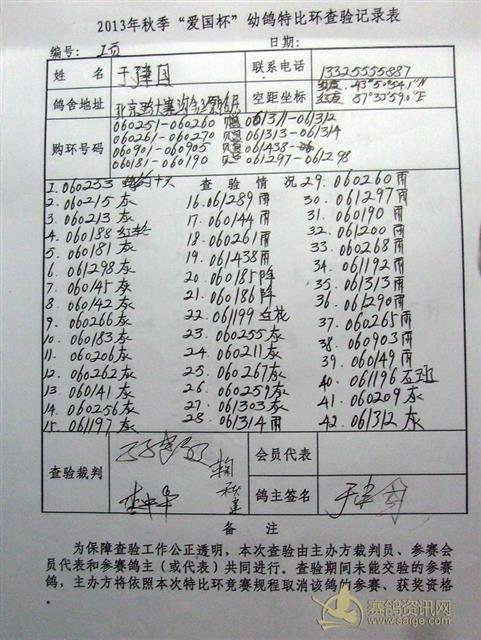 2013年秋季“爱国杯”幼鸽特比环查验记录表
编号： 1页 日期：
姓名 于建国 联系电话 13325555887
鸽舍地址 北京路 空距坐标 北纬 43°50′54.1″N
东经 87°33′59.0″E
购环号码 060251-060260 061311-061312
060261-060270 061313-061314
060901-060905 061438
060181-060190 061297-061298
查验情况
1. 060253
2. 060215灰
3. 060213灰
4. 060188红轮
5. 060181灰
6. 061298灰
7. 060145灰
8. 060142灰
9. 060266灰
10. 060183灰
11. 060206灰
12. 060262灰
13. 060141灰
14. 060256灰
15. 061197灰
16. 061289雨
17. 060144雨
18. 060261雨
19. 061438雨
20. 060185降
21. 060186降
22. 061199白花
23. 060255灰
24. 060211灰
25. 060267灰
26. 060259灰
27. 061303灰
28. 061314雨
29. 060260雨
30. 061297雨
31. 060190雨
32. 061200雨
33. 060268雨
34. 061192雨
35. 061313雨
36. 061290雨
37. 060265雨
38. 060903雨
39. 060149雨
40. 061196石斑
41. 060209灰
42. 061312灰
查验裁判 会员代表
鸽主签名 于建国
备注
为保障查验工作公正透明，本次查验由主办方裁判员、参赛会
员代表和参赛鸽主（或代表）共同进行。查验期间未能交验的参赛
鸽，主办方将依照本次特比环竞赛规程取消该鸽的参赛、获奖资格
赛鸽资讯网
www.saige.com